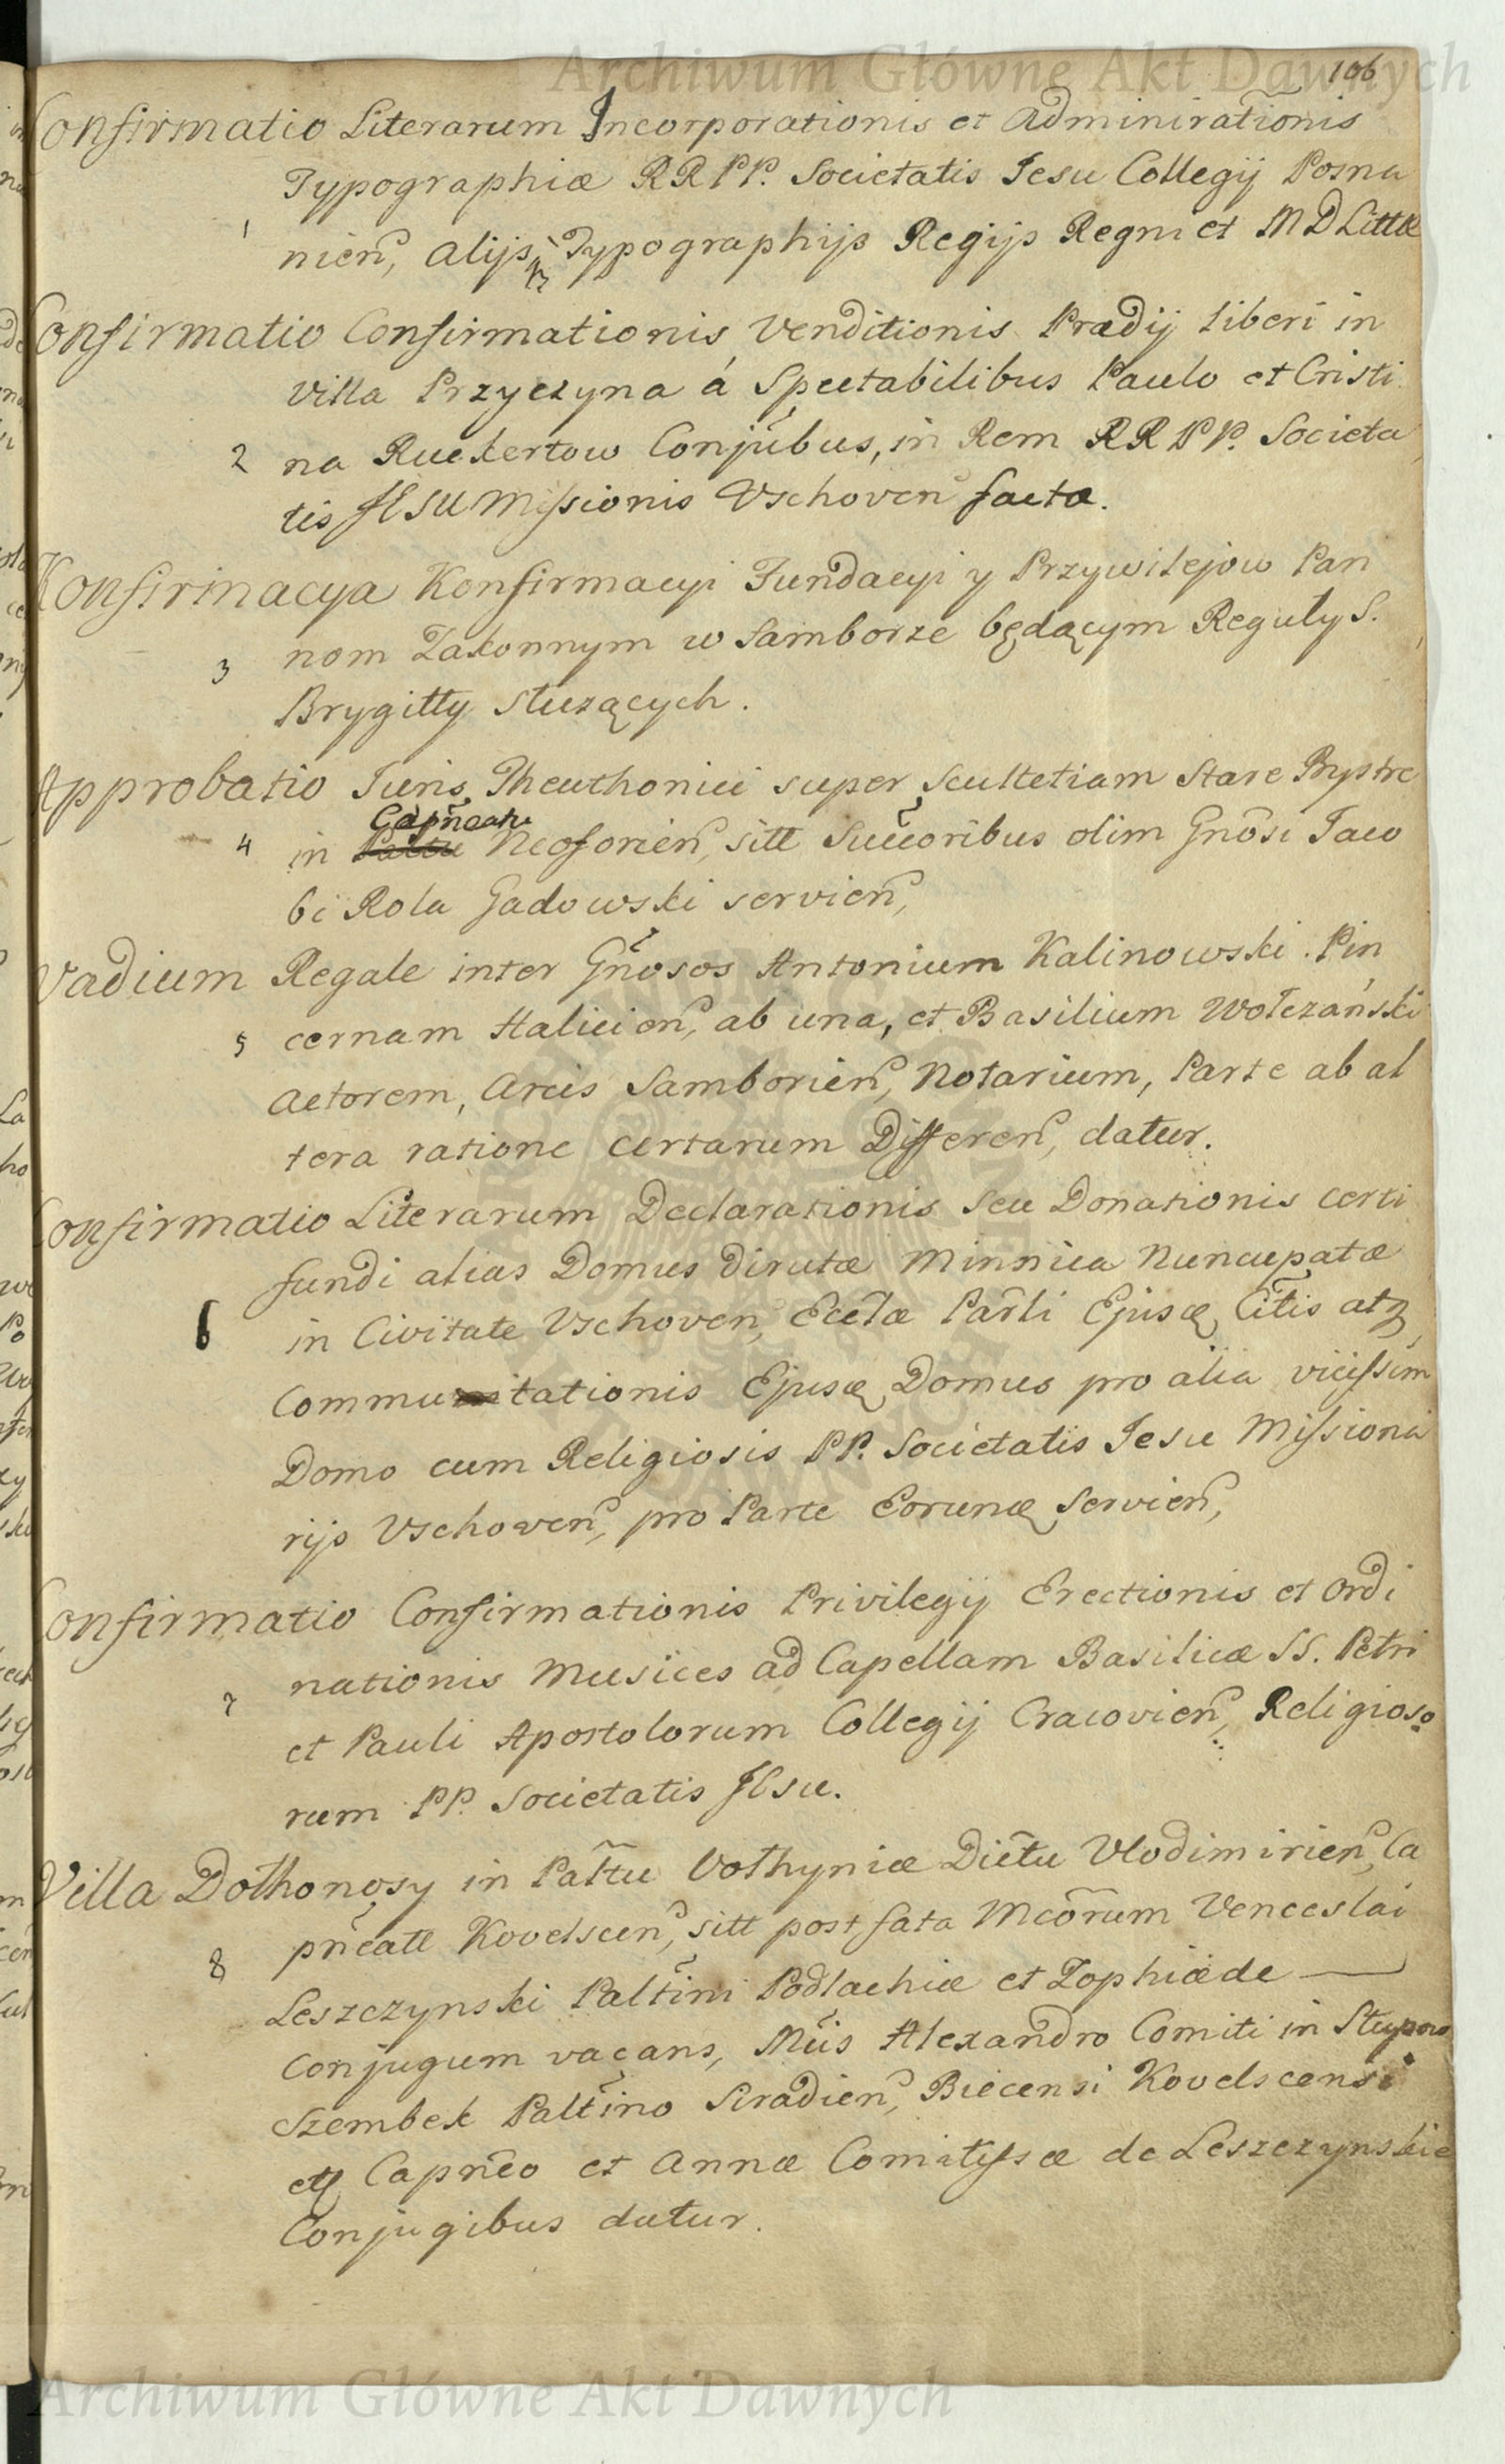 Archiwum Główne Akt Dawnych
106
Confirmatio Literarum Incorporationis et Adminirationis
Typographiæ RRPP. Societatis Jesu Collegij Posna
1 nien, alijs Typographijs Regijs Regni et MDLittæ
Confirmatio Confirmationis Venditionis Prædij liberi in
villa Przyczyna á Spectabilibus Paulo et Cristi
2 na Ruckertow Conjũbus, in Rem RRPP. Societa
tis JESU Missionis Vschoven factæ.
Konfirmacya Konfirmacyi Fundacyi y Przywilejow Pan
3 nom Zakonnym w Samborze będącym Reguły S.
Brygitty sluzących.
Approbatio Juris Theuthonici super Scultetiam Stare Bystre
Capñeatu
4 in Neoforien, sitt Suc̃coribus olim Gnõsi Jaco
bi Rola Gadowski servien,
Vadium Regale inter Gñosos Antonium Kalinowski Pin
5 cernam Halicien, ab una, et Basilium Wołczański
Actorem, Arcis Samborien, Notarium, Parte ab al
tera ratione certarum Differen, datur.
Confirmatio Literarum Declarationis seu Donationis certi
fundi alias Domus dirutæ Minnica Nuncupatæ
6 in Civitate Vschoven, Eccłæ Parłi Ejusq Cĩtis atq
Commutationis Ejusq Domus pro alia vicissim
Domo cum Religiosis PP. Societatis Jesu Missiona
rijs Vschoven, pro Parte Eorunq servien,
Confirmatio Confirmationis Privilegij Erectionis et Ordi
nationis Musices ad Capellam Basilicæ SS. Petri
7 et Pauli Apostolorum Collegij Cracovien, Religioso
rum PP. Societatis JEsu.
Villa Dołhonosy in Pałtu Vołhyniæ Dictu Vlodimirien, Ca
8 pñeatt Kovelscen, sitt post fata Mcõrum Venceslai
Leszczynski Paltĩni Podlachiæ et Zophiæ de —
Conjugum vacans, Mcĩs Alexandro Comiti in Słupow
Szembek Paltĩno Siradien, Biecensi Kovelscensi
etq Capnẽo et Annæ Comitissæ de Leszczynskie
Conjugibus datur.
Archiwum Główne Akt Dawnych